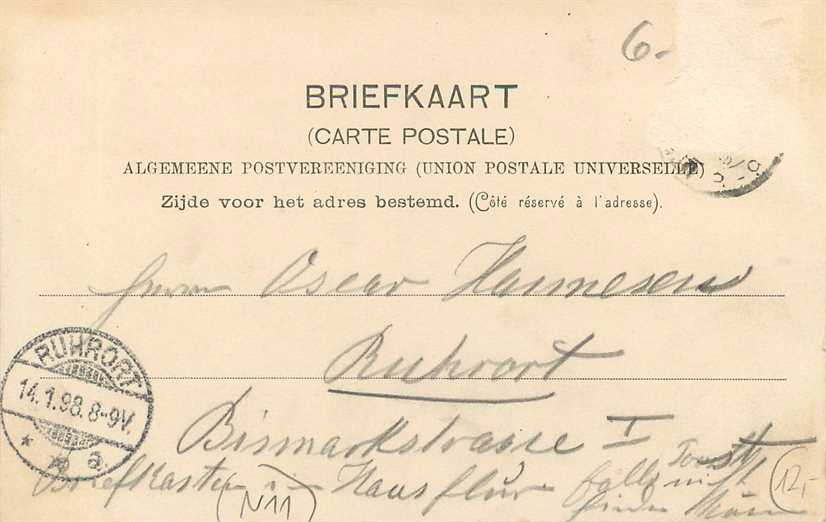 6.-
BRIEFKAART
(CARTE POSTALE)
ALGEMEENE POSTVEREENIGING (UNION POSTALE UNIVERSELLE)
Zijde voor het adres bestemd. (Côté réservé à l'adresse).
Herrn Oscar Hannesen
Ruhrort
RUHRORT
14.1.98.8-9V.
* a.
Bismarkstrasse I
Briefkasten im Hausflur falls nicht
finden
(N11)
12,-